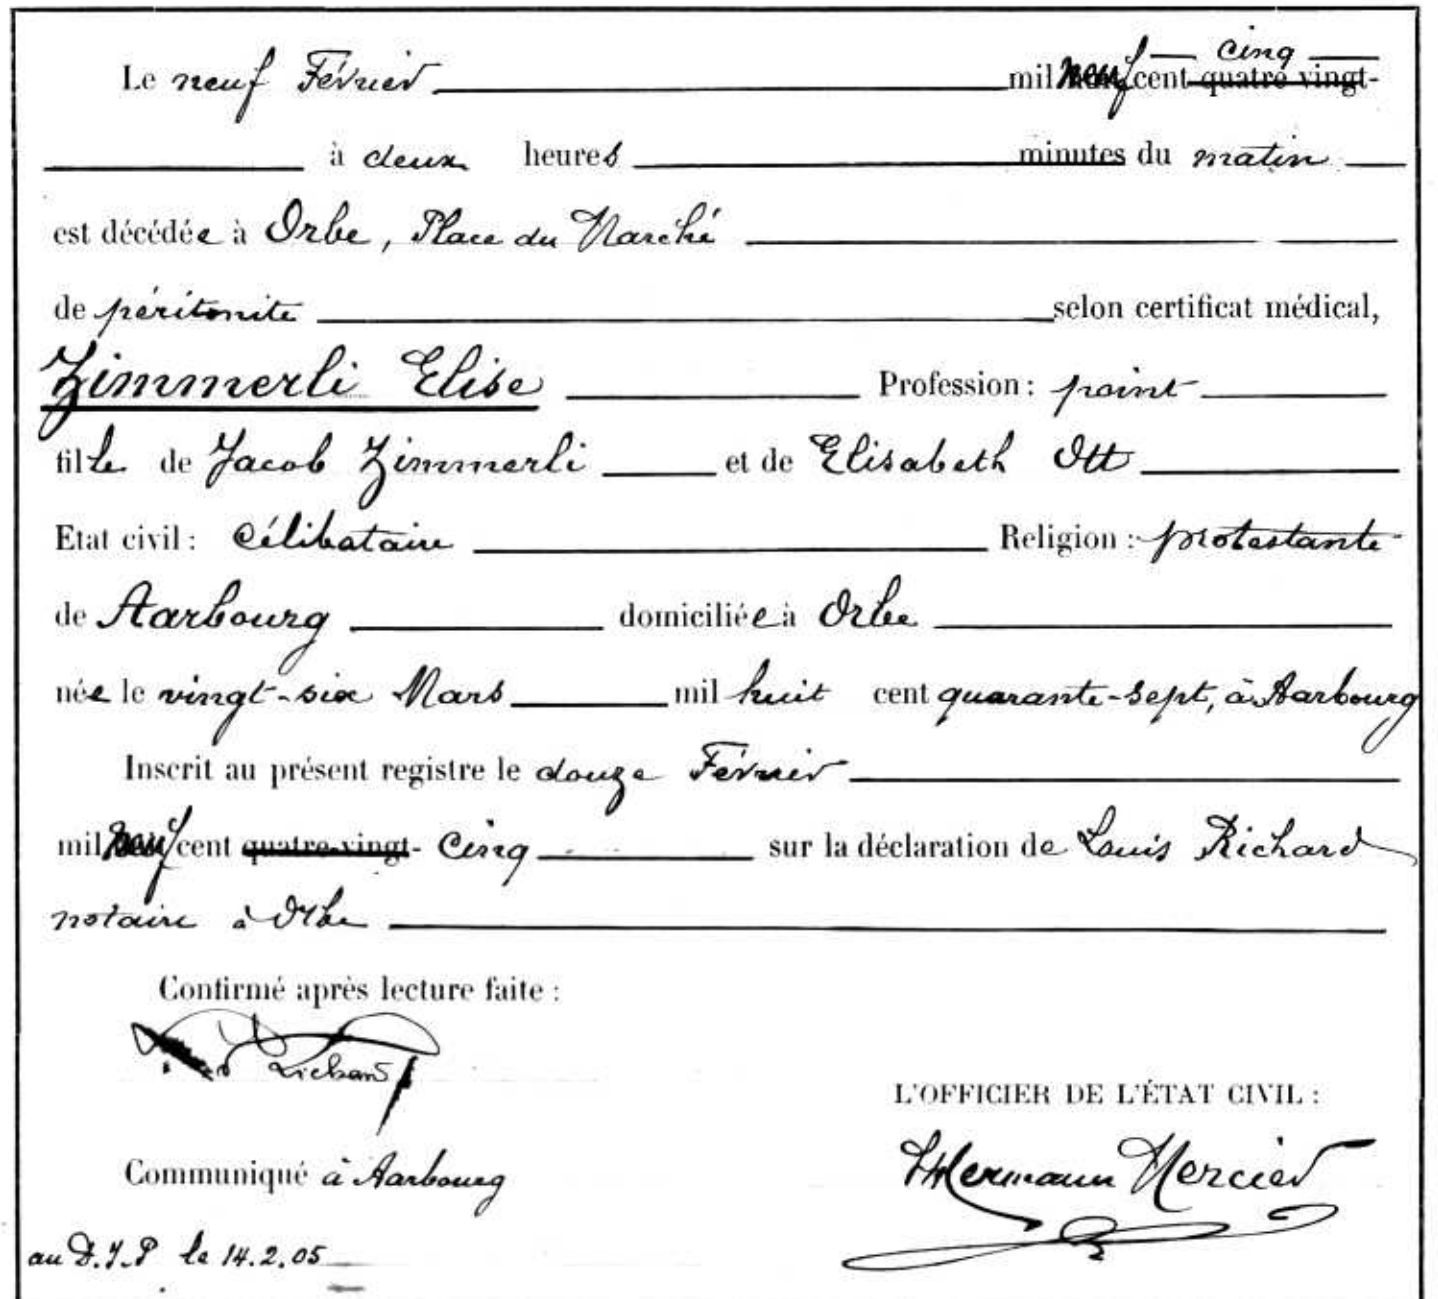 Le neuf Février mil neuf cent quatre-vingt- cinq
à deux heures minutes du matin
est décédée à Orbe, Place du Marché
de péritonite selon certificat médical,
Zimmerli Elise Profession : point
fille de Jacob Zimmerli et de Elisabeth Ott
Etat civil : Célibataire Religion : protestante
de Aarbourg domiciliée à Orbe
née le vingt-six Mars mil huit cent quarante-sept, à Aarbourg
Inscrit au présent registre le douze Février
mil neuf cent quatre-vingt- cinq sur la déclaration de Louis Richard
notaire à Orbe
Confirmé après lecture faite :
Richard
L'OFFICIER DE L'ÉTAT CIVIL :
Communiqué à Aarbourg
Hermann Mercier
au D.J.P le 14.2.05